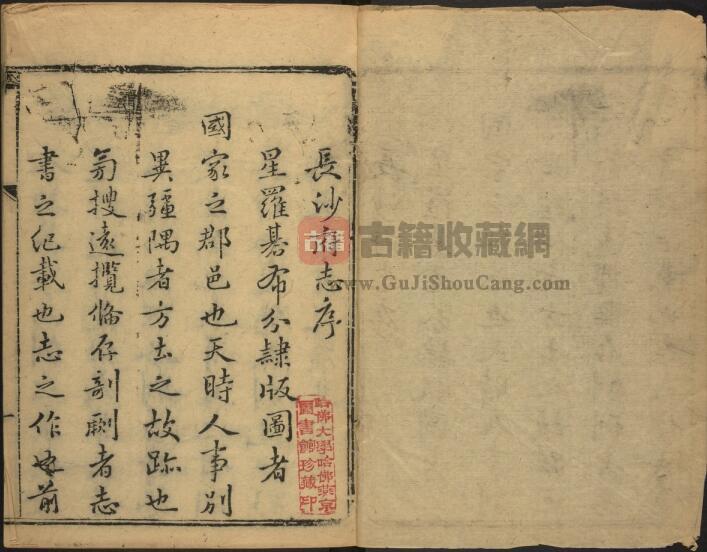 長沙府志序
星羅碁布分隸版圖者
國家之郡邑也天時人事別
異疆隅者方土之故跡也
旁搜遠攬偹存剞劂者志
書之紀載也志之作前
哈佛大學哈佛燕京
圖書館珍藏印
古籍
古籍收藏網
www.GuJiShouCang.com